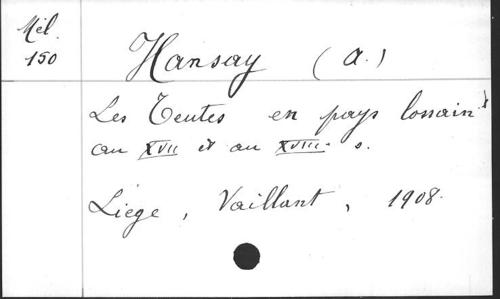 Mél.
150
Hansay (A.)
Les Teutes en pays lossain
au XVII et au XVIII. s.
Liège, Vaillant, 1908.